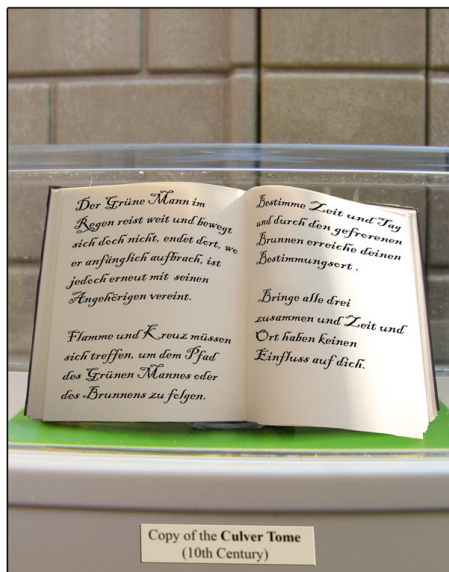 Der Grüne Mann im
Regen reist weit und bewegt
sich doch nicht, endet dort, wo
er anfänglich aufbrach, ist
jedoch erneut mit seinen
Angehörigen vereint.
Flamme und Kreuz müssen
sich treffen, um dem Pfad
des Grünen Mannes oder
des Brunnens zu folgen.
Bestimme Zeit und Tag
und durch den gefrorenen
Brunnen erreiche deinen
Bestimmungsort .
Bringe alle drei
zusammen und Zeit und
Ort haben keinen
Einfluss auf dich.
Copy of the Culver Tome
(10th Century)